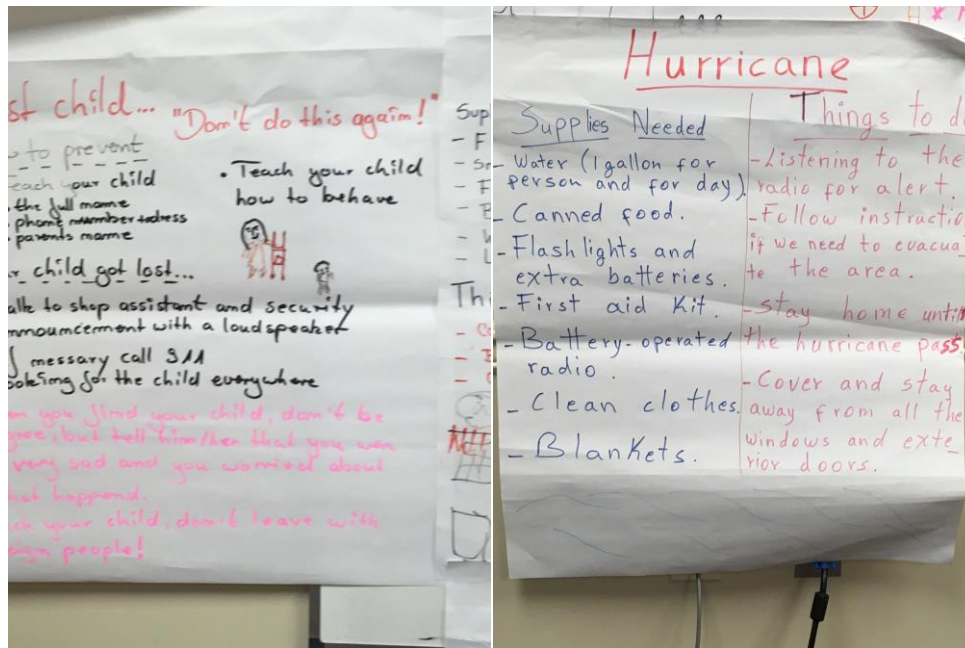 st child...
"Don't do this again!"
to prevent
each your child
• the full mame
• phome mumber adress
• parents mame
• Teach your child
how to behave
r child got lost...
alk to shop assistant and security
mnouncement with a loudspeaker
messary call 911
ooking for the child everywhere
you find your child, don't be
but tell him/her that you were
very sad and you worried about
hat happend.
ch your child, don't leave with
eign people!
Sup
- F
- F
Thi
Hurricane
Supplies Needed
- Water (1 gallon for
person and for day).
- Canned food.
- Flashlights and
extra batteries.
- First aid Kit.
- Battery-operated
radio.
- Clean clothes.
- Blankets.
Things to d
- Listening to the
radio for alert.
- Follow instructio
if we need to evacua_
te the area.
- stay home until
the hurricane pass.
- Cover and stay
away from all the
windows and exte_
rior doors.